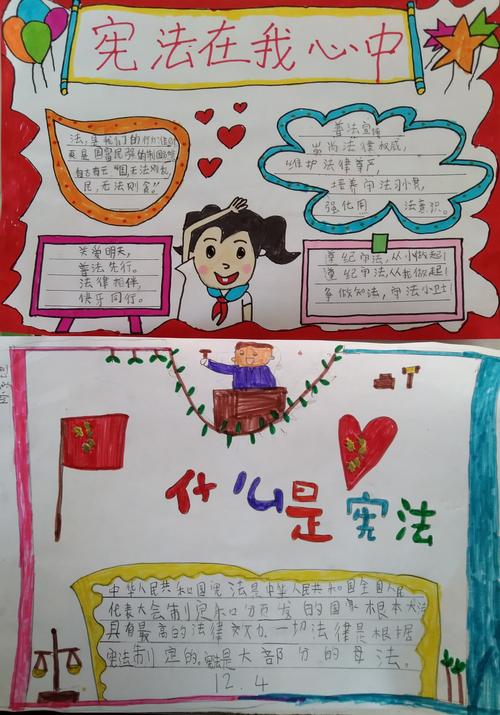 宪法在我心中
法,是我们的行为准则
更是国富民强的制国
自古有云"国,无法则乱,
民,无法则贪!"
普法宣传
崇尚法律权威,
维护法律尊严,
培养守法习惯,
强化用法意识。
关爱明天,
普法先行。
法律相伴,
快乐同行。
遵纪守法,从小做起!
遵纪守法,从我做起!
争做知法,守法小卫士!
什么是宪法
中华人民共和国宪法是中华人民共和国全国人民
代表大会制定和颁发的国家根本大法
具有最高的法律效力。一切法律是根据
宪法制定的。宪法是大部分的母法。
12.4